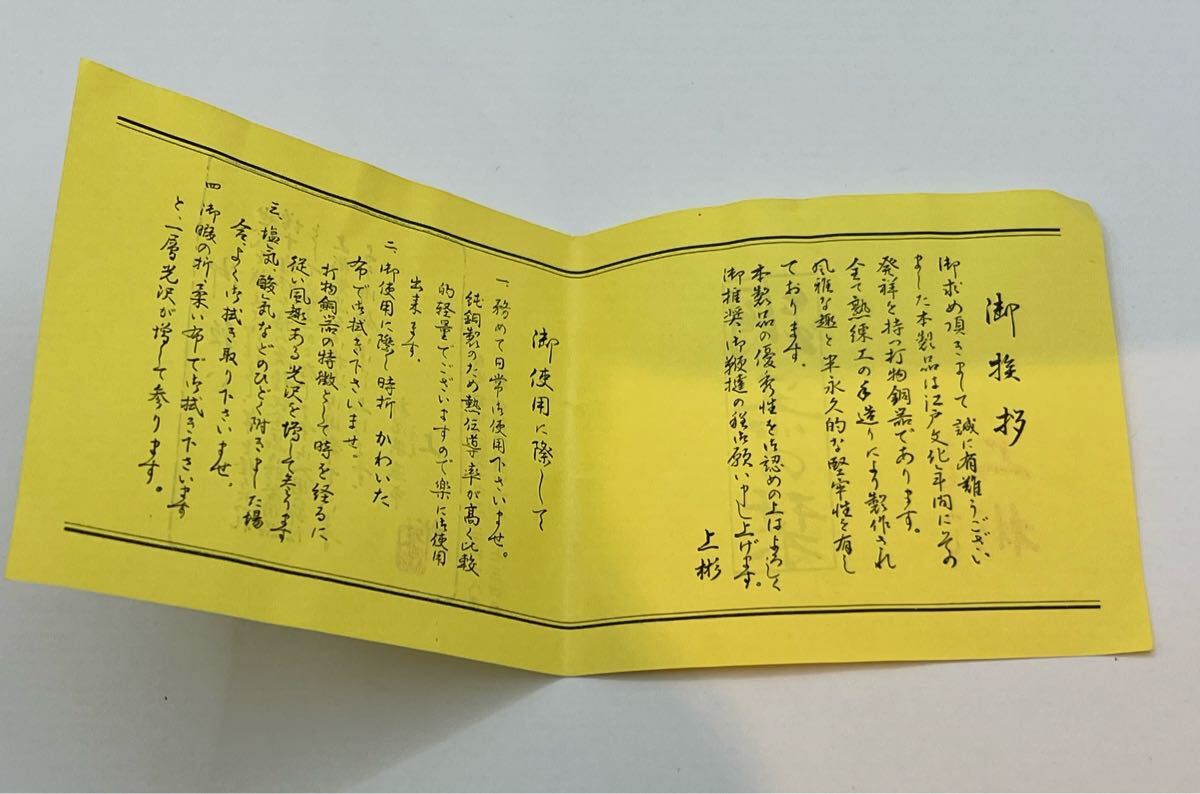 御挨拶
御求め頂きまして誠に有難うござい
ました本製品は江戸文化年間にその
発祥を持つ打物銅器であります。
全て熟練工の手造りにより製作され
風雅な趣と半永久的な堅牢性を有し
ております。
本製品の優秀性を御認めの上はよろしく
御推奨、御鞭撻の程御願い申し上げます。
上彬
御使用に際して
一、務めて日常御使用下さいませ。
純銅製のため熱伝導率が高く比較
的軽量でございますので楽に御使用
出来ます。
二、御使用に際し時折かわいた
布で御拭き下さいませ。
打物銅器の特徴として時を経るに
従い風趣ある光沢を増して参ります
三、塩気、酸気などのひどく附きました場
合よく御拭き取り下さいませ。
四、御暇の折、柔い布で御拭き下さいます
と、一層光沢が増して参ります。